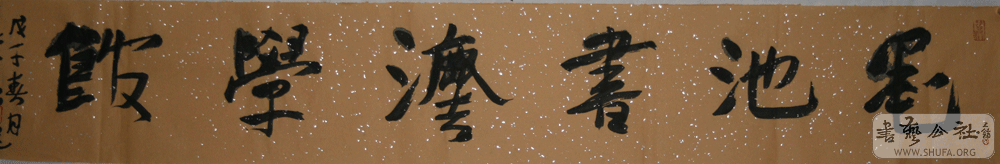 墨池書灋學
戊子春月
書藝公社
WWW.SHUFA.ORG